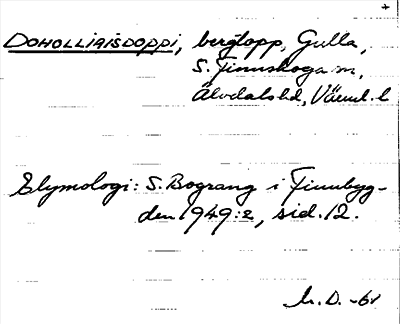 +
DOHOLLIAISDOPPI, bergtopp, Gulla,
S. Finnskoga sn,
Älvdals hd, Värml. l
Etymologi: S. Bograng i Finnbyg-
den 1949:2, sid. 12.
M. D. -61